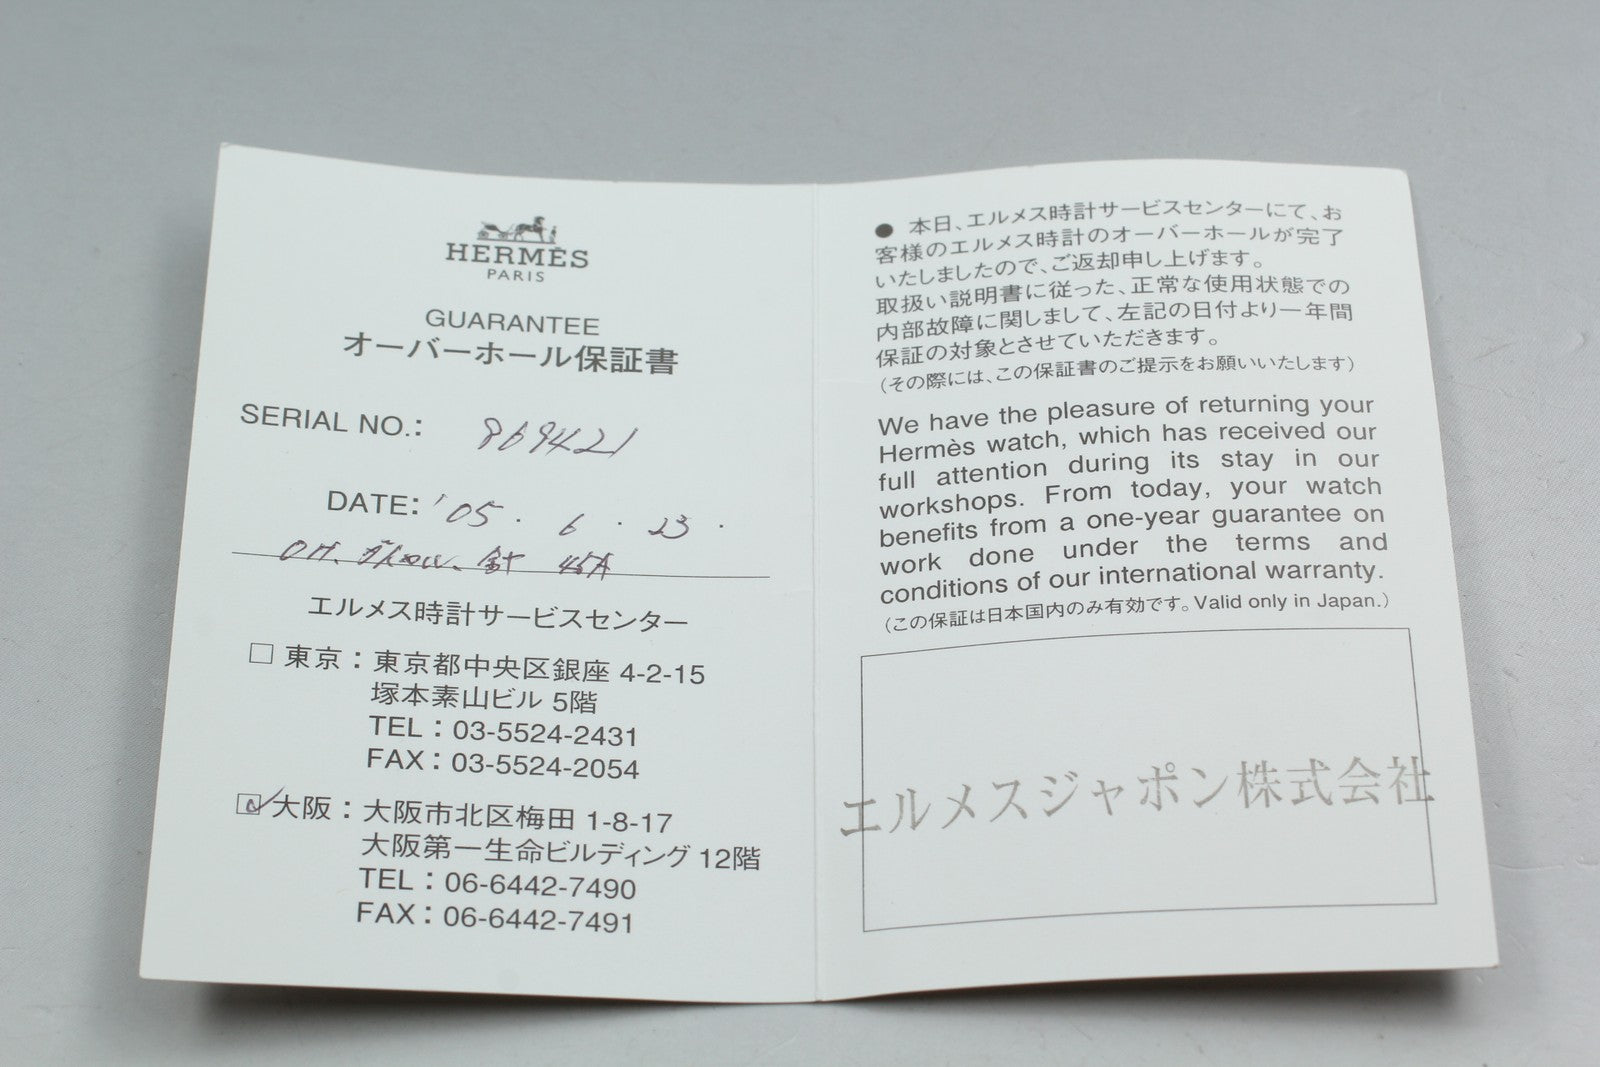 HERMÈS
PARIS
GUARANTEE
オーバーホール保証書
SERIAL NO.: 869421
DATE: '05. 6. 23.
OH. 針
エルメス時計サービスセンター
□ 東京：東京都中央区銀座 4-2-15
塚本素山ビル 5階
TEL：03-5524-2431
FAX：03-5524-2054
☑ 大阪：大阪市北区梅田 1-8-17
大阪第一生命ビルディング 12階
TEL：06-6442-7490
FAX：06-6442-7491
● 本日、エルメス時計サービスセンターにて、お
客様のエルメス時計のオーバーホールが完了
いたしましたので、ご返却申し上げます。
取扱い説明書に従った、正常な使用状態での
内部故障に関しまして、左記の日付より一年間
保証の対象とさせていただきます。
（その際には、この保証書のご提示をお願いいたします）
We have the pleasure of returning your
Hermès watch, which has received our
full attention during its stay in our
workshops. From today, your watch
benefits from a one-year guarantee on
work done under the terms and
conditions of our international warranty.
（この保証は日本国内のみ有効です。Valid only in Japan.）
エルメスジャポン株式会社